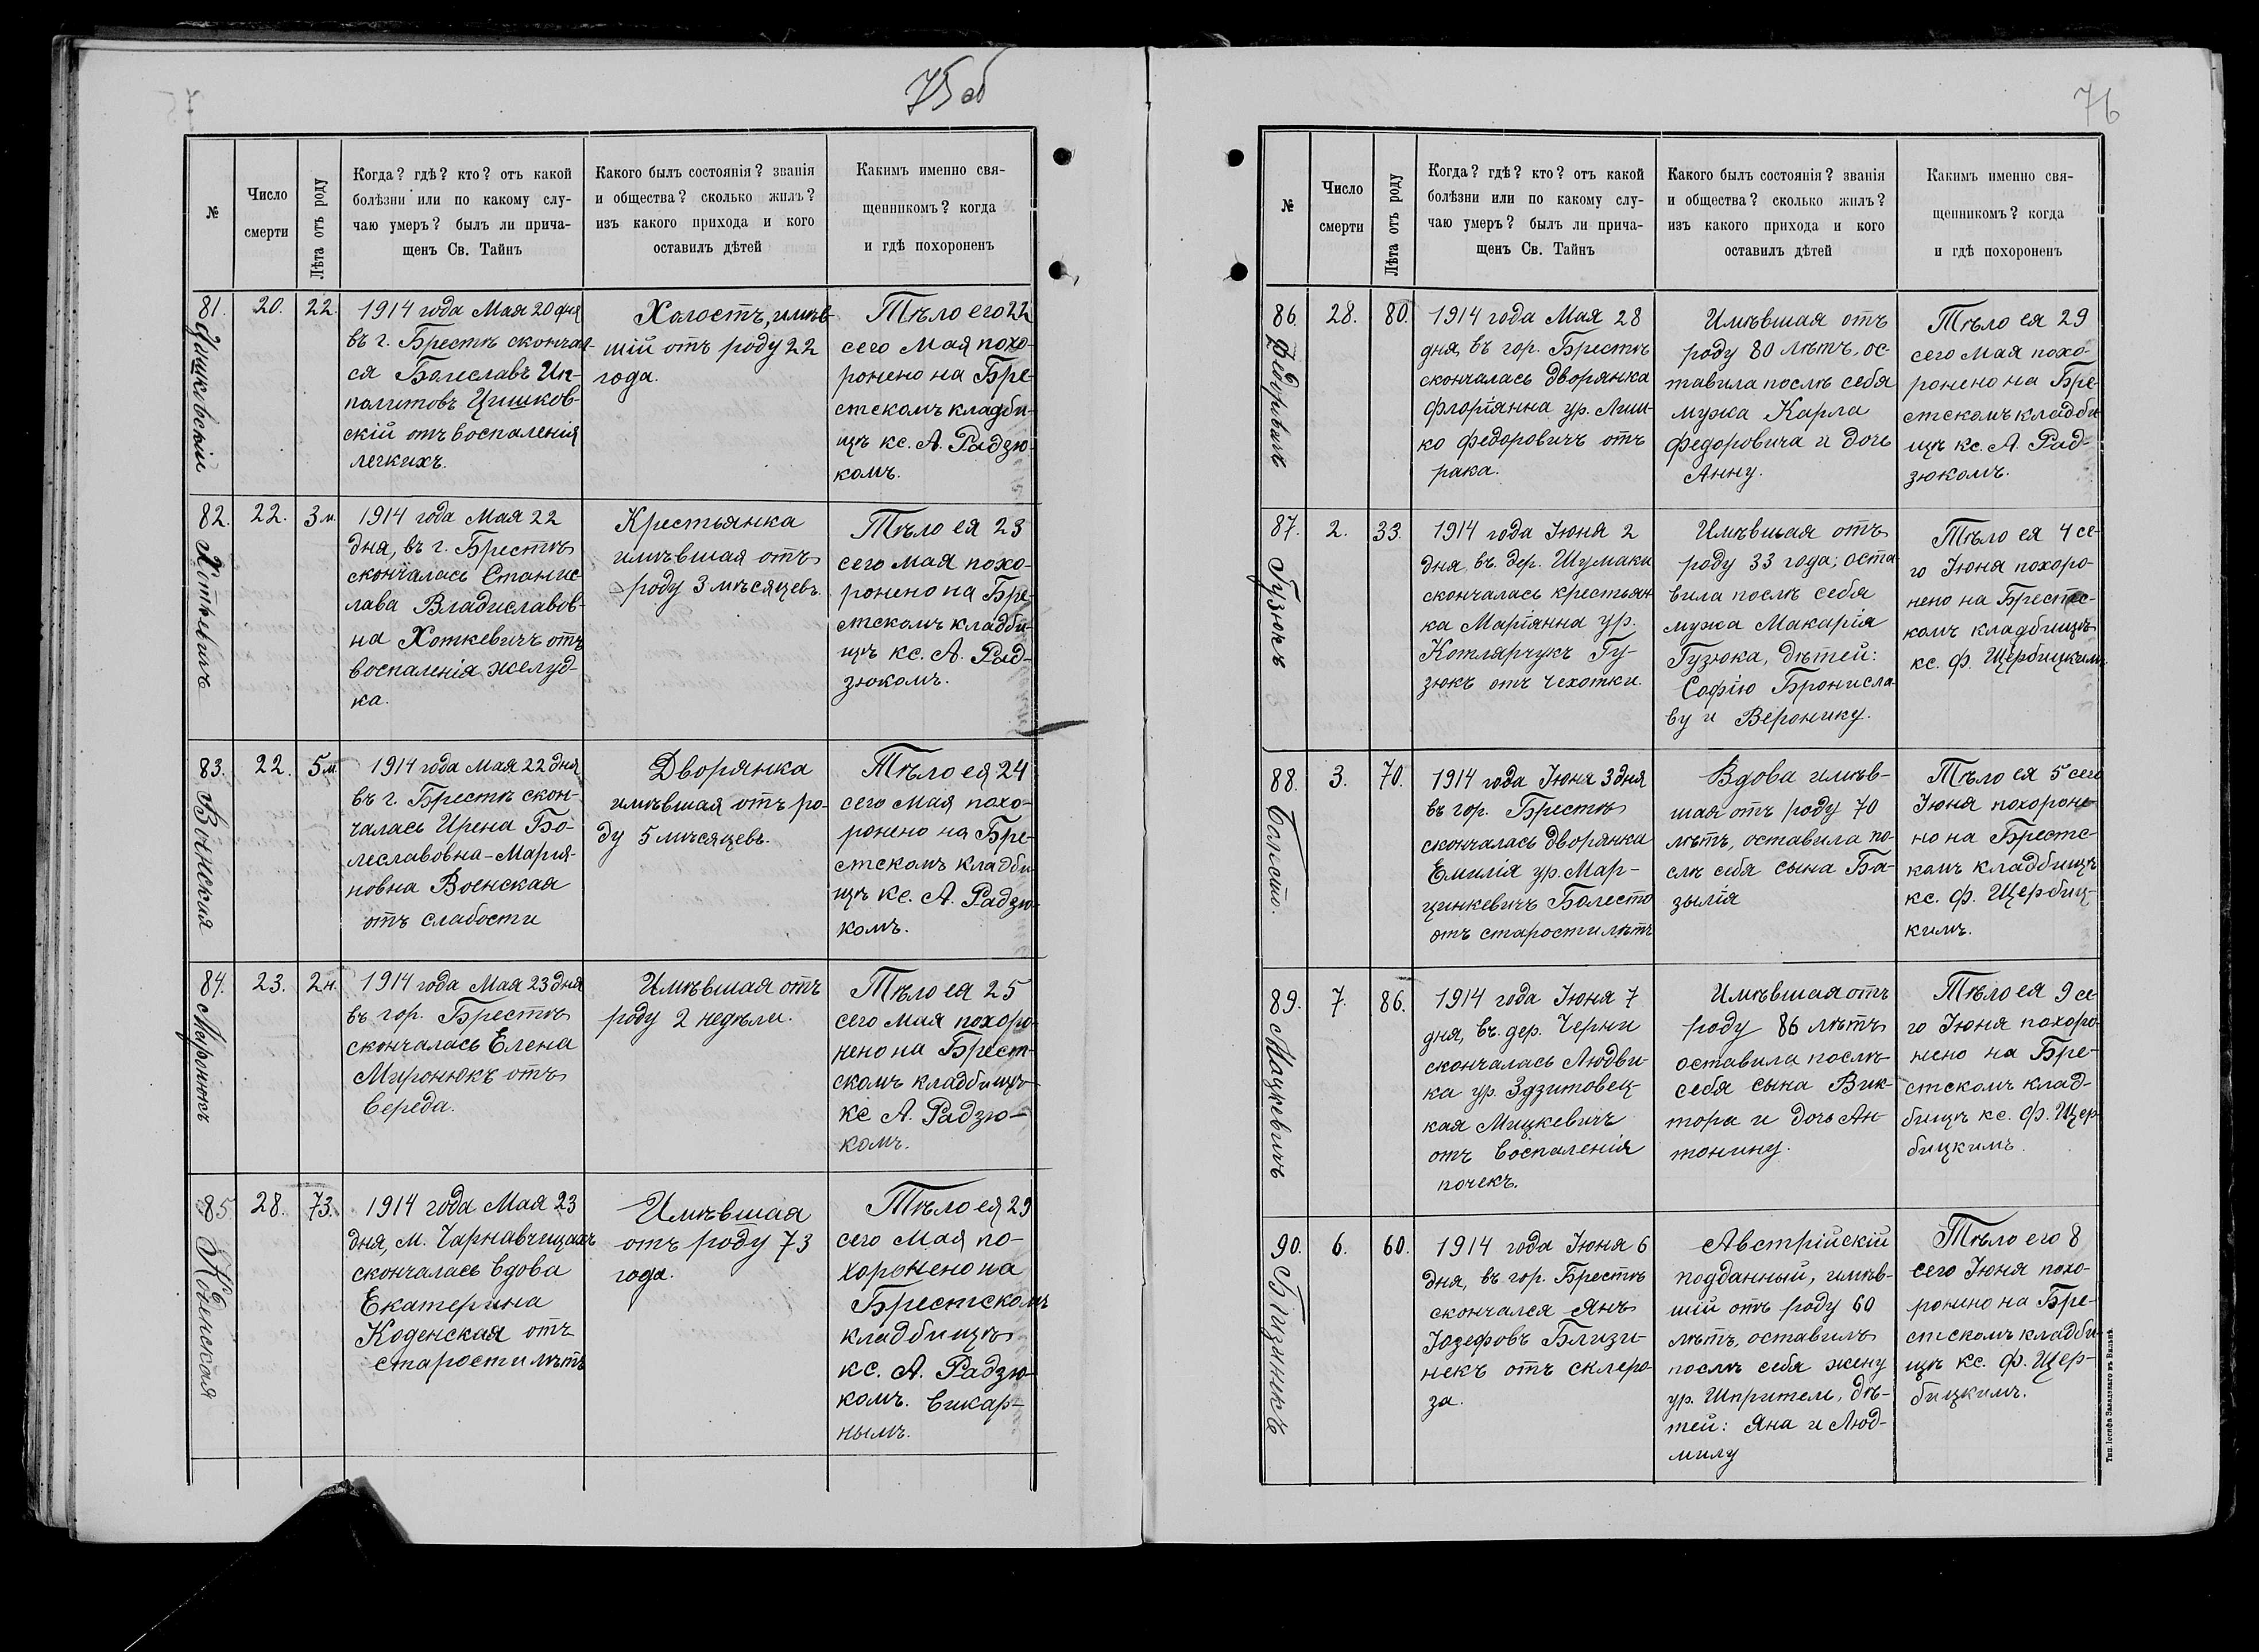 75 об
№
Число
смерти
Лѣта отъ роду
Когда? гдѣ? кто? отъ какой
болѣзни или по какому слу-
чаю умеръ? былъ ли прича-
щенъ Св. Тайнъ
Какого былъ состоянія? званія
и общества? сколько жилъ?
изъ какого прихода и кого
оставилъ дѣтей
Какимъ именно свя-
щенникомъ? когда
и гдѣ похороненъ
81.
Цишковскій
20.
22.
1914 года Мая 20 дня
въ г. Брестѣ скончал-
ся Болеславъ Ип-
политовъ Цишков-
скій отъ воспаленія
легкихъ.
Холостъ, имѣв-
шій отъ роду 22
года.
Тѣло его 22
сего Мая похо-
ронено на Бре-
стскомъ кладби-
щѣ кс. А. Радзю-
комъ.
82.
Хоткевичъ
22.
3 м.
1914 года Мая 22
дня, въ г. Брестѣ
скончалась Станис-
лава Владиславов-
на Хоткевичъ отъ
воспаленія желуд-
ка.
Крестьянка
имѣвшая отъ
роду 3 мѣсяцевъ.
Тѣло ея 23
сего мая похо-
ронено на Бре-
стскомъ кладби-
щѣ кс. А. Рад-
зюкомъ.
83.
Воинская
22.
5 м
1914 года Мая 22 дня
въ г. Брестѣ скон-
чалась Ирена Бо-
леславовна-Мария-
новна Военская
отъ слабости
Дворянка
имѣвшая отъ ро-
ду 5 мѣсяцевъ.
Тѣло ея 24
сего мая похо-
ронено на Бре-
стскомъ кладби-
щѣ кс. А. Радзю-
комъ.
84.
Миронюкъ
23.
2 н.
1914 года Мая 23 дня
въ гор. Брестѣ
скончалась Елена
Миронюкъ отъ
вереда.
Имѣвшая отъ
роду 2 недѣли.
Тѣло ея 25
сего мая похоро-
нено на Брест-
скомъ кладбищѣ
кс А. Радзю-
комъ.
85.
Коденская
28.
73.
1914 года Мая 23
дня, м. Чарнавчицахъ
скончалась вдова
Екатерина
Коденская отъ
старости лѣтъ
Имѣвшая
отъ роду 73
года.
Тѣло ея 29
сего Мая по-
хоронено на
Брестскомъ
кладбищѣ
кс. А. Радзю-
комъ. викар-
нымъ.
76
№
Число
смерти
Лѣта отъ роду
Когда? гдѣ? кто? отъ какой
болѣзни или по какому слу-
чаю умеръ? былъ ли прича-
щенъ Св. Тайнъ
Какого былъ состоянія? званія
и общества? сколько жилъ?
изъ какого прихода и кого
оставилъ дѣтей
Какимъ именно свя-
щенникомъ? когда
и гдѣ похороненъ
86.
Федоровичъ
28.
80.
1914 года Мая 28
дня, въ гор. Брестѣ
скончалась дворянка
Флоріянна ур. Лиш-
ко Федоровичъ отъ
рака.
Имѣвшая отъ
роду 80 лѣтъ, ос-
тавила послѣ себя
мужа Карла
Федоровича и дочь
Анну.
Тѣло ея 29
сего мая похо-
ронено на Бре-
стскомъ кладби-
щѣ кс. А. Рад-
зюкомъ.
87.
Гузюкъ
2.
33.
1914 года Іюня 2
дня, въ дер. Шумаки
скончалась крестьян-
ка Маріянна ур.
Котлярчукъ Гу-
зюкъ отъ чехотки.
Имѣвшая отъ
роду 33 года; оста-
вила послѣ себя
мужа Макарія
Гузюка, дѣтей:
Софію Бронисла-
ву и Веронику.
Тѣло ея 4 се-
го Іюня похоро-
нено на Брестс-
комъ кладбищѣ
кс. Ф. Щербицкимъ
88.
Болесто.
3.
70.
1914 года Іюня 3 дня
въ гор. Брестѣ
скончалась дворянка
Емилія ур. Мар-
цинкевичъ Болесто
отъ старости лѣтъ
Вдова имѣв-
шая отъ роду 70
лѣтъ, оставила по-
слѣ себя сына Ба-
зылія
Тѣло ея 5 сего
Іюня похороне-
но на Брестс-
комъ кладбищѣ
кс. Ф. Щербиц-
кимъ.
89.
Мицкевичъ
7.
86.
1914 года Іюня 7
дня, въ дер. Черни
скончалась Людви-
ка ур. Здзитовец-
кая Мицкевичъ
отъ воспаленія
почекъ.
Имѣвшая отъ
роду 86 лѣтъ
оставила послѣ
себя сына Вик-
тора и дочь Ан-
тонину.
Тѣло ея 9 се-
го Іюня похоро-
нено на Бре-
стскомъ клад-
бищѣ кс. Ф. Щер-
бицкимъ.
90.
Близинекъ
6.
60.
1914 года Іюня 6
дня, въ гор. Брестѣ
скончался Янъ
Іозефовъ Близи-
некъ отъ склеро-
за.
Австрійскій
подданный, имѣв-
шій отъ роду 60
лѣтъ, оставилъ
послѣ себя жену
ур. Шпритель, дѣ-
тей: Яна и Люд-
милу
Тѣло его 8
сего Іюня похо-
ронено на Бре-
стскомъ кладби-
щѣ кс. Ф. Щер-
бицкимъ.
Тип. Іосифа Завадзкаго въ Вильнѣ